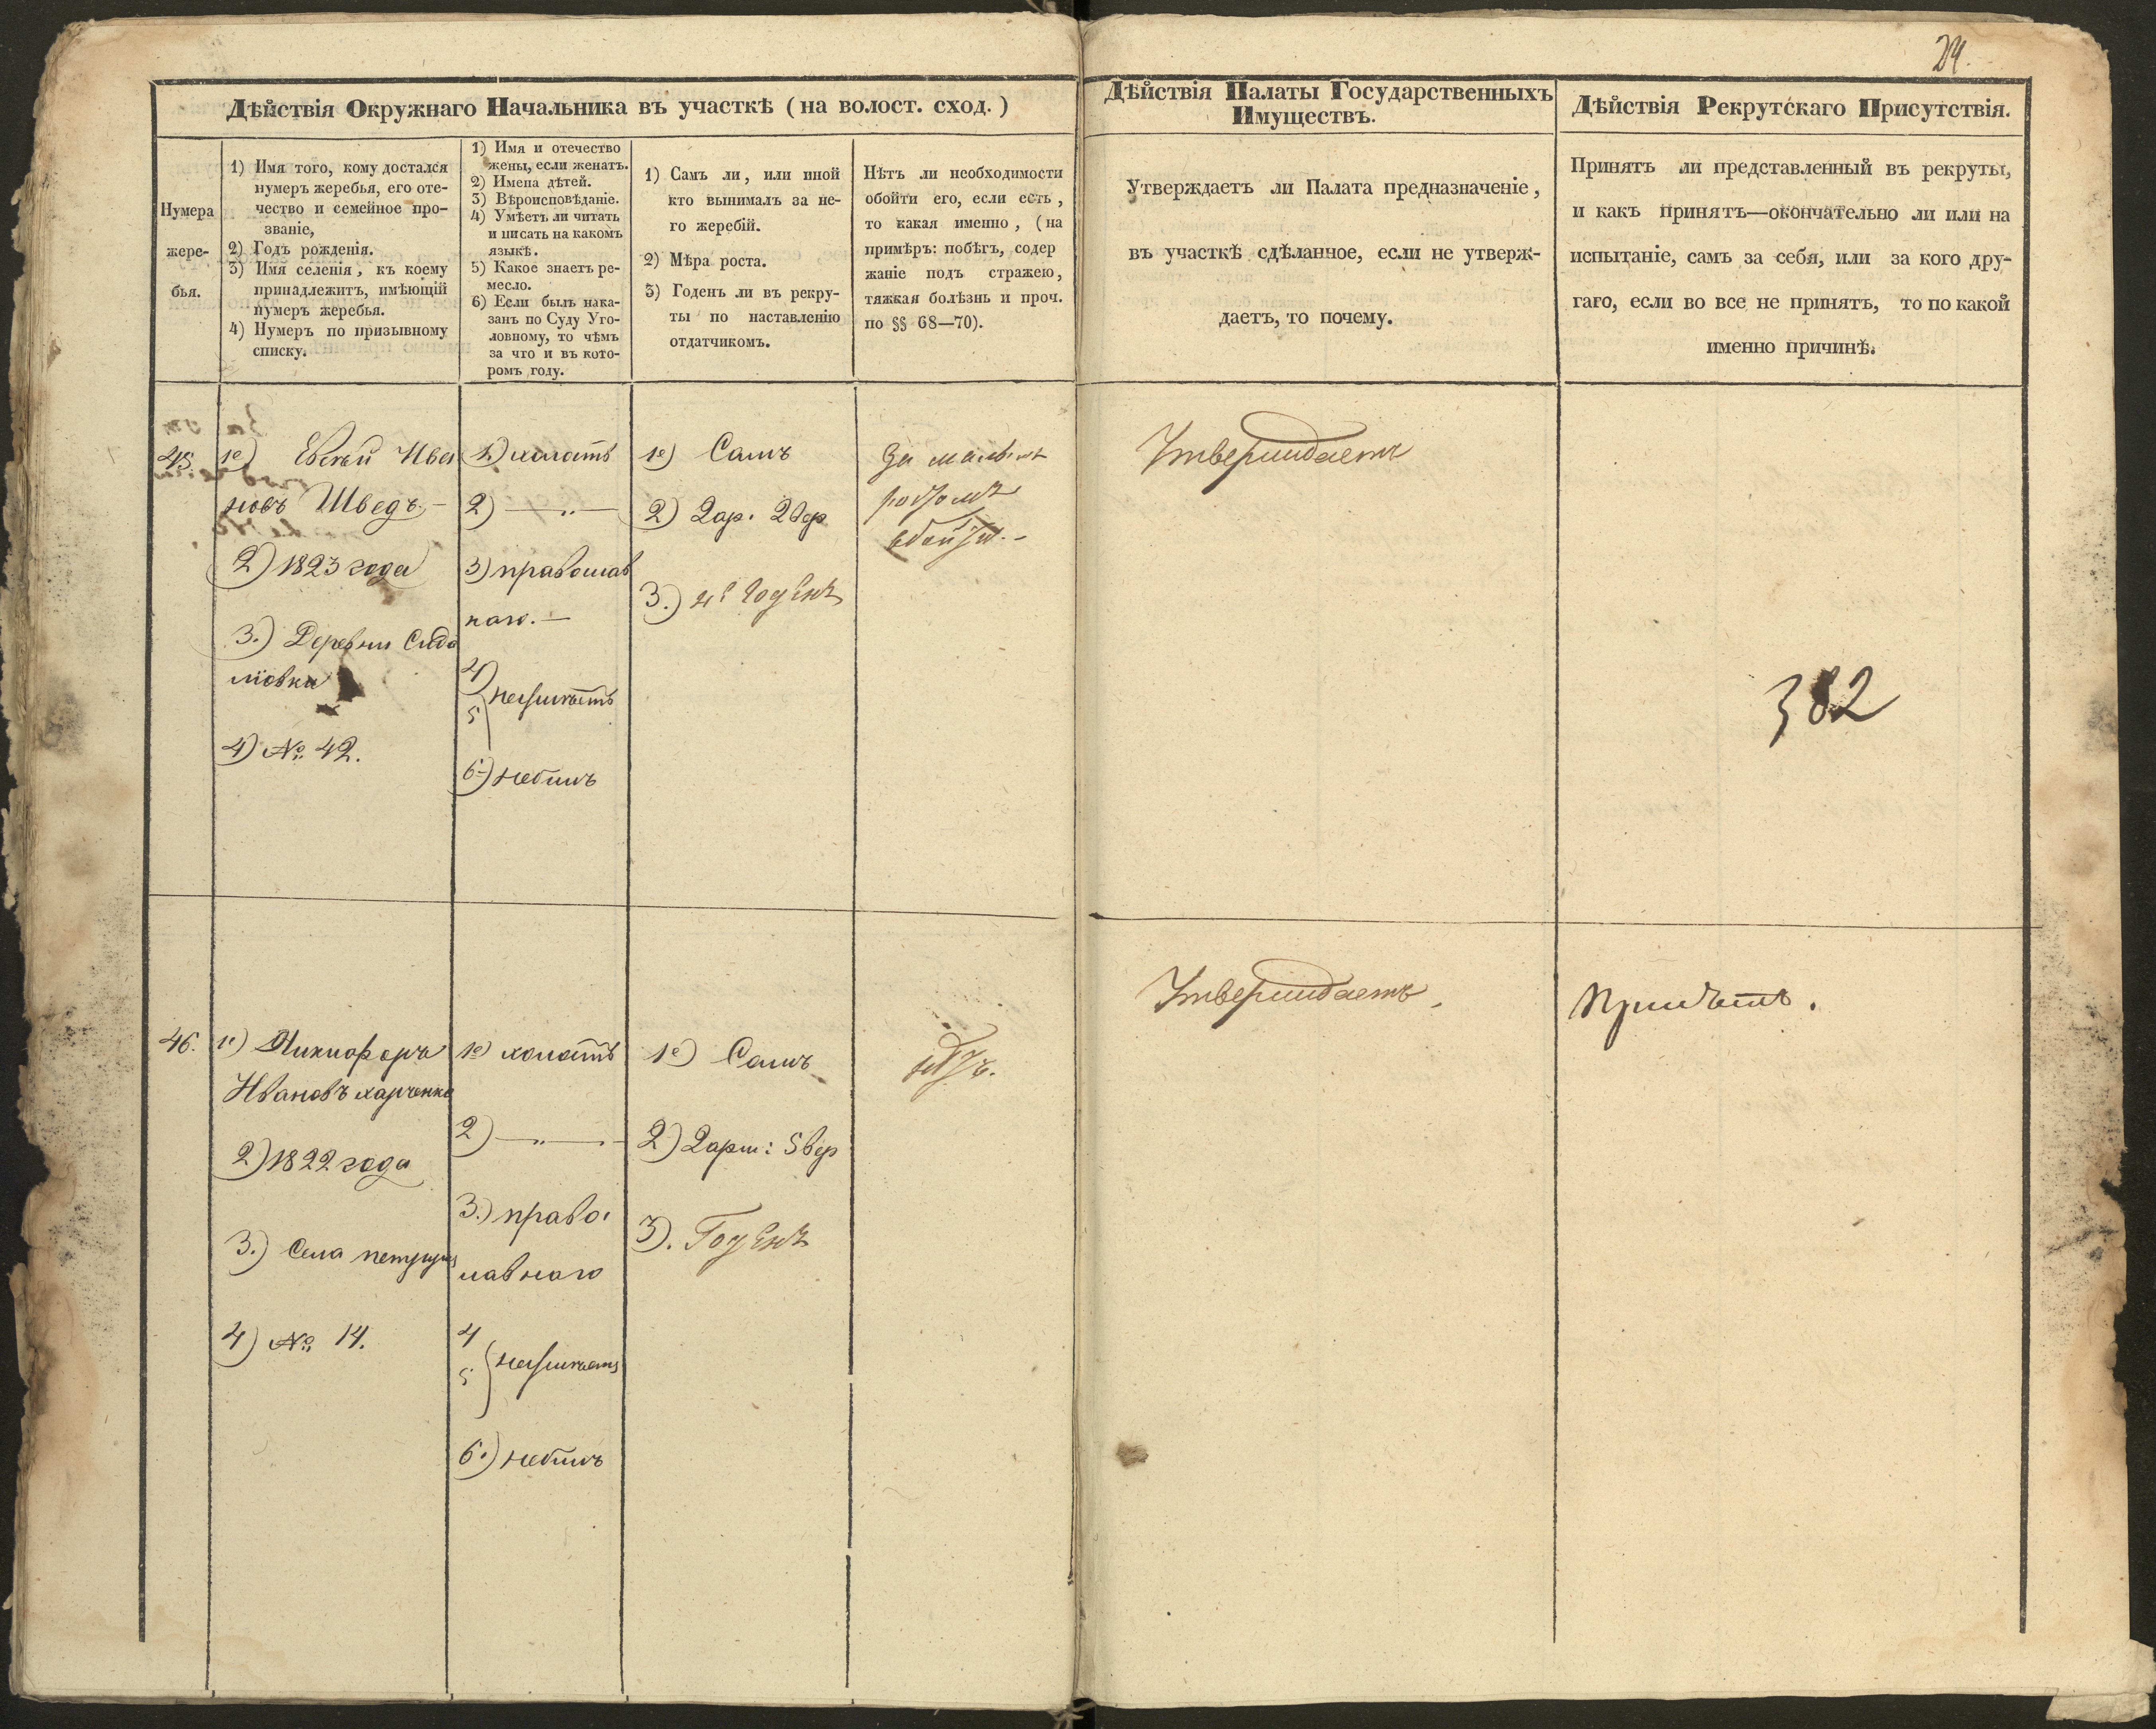 24.
Дѣйствія Окружнаго Начальника въ участкѣ (на волост. сход.)
Нумера
жере-
бья.
1) Имя того, кому достался
нумеръ жеребья, его оте-
чество и семейное про-
званіе,
2) Годъ рожденія.
3) Имя селенія, къ коему
принадлежитъ, имѣющій
нумеръ жеребья.
4) Нумеръ по призывному
списку.
1) Имя и отечество
жены, если женатъ.
2) Имена дѣтей.
3) Вѣроисповѣданіе.
4) Умѣетъ ли читать
и писать на какомъ
языкѣ.
5) Какое знаетъ ре-
месло.
6) Если былъ нака-
занъ по Суду Уго-
ловному, то чѣмъ
за что и въ кото-
ромъ году.
1) Самъ ли, или иной
кто вынималъ за не-
го жеребій.
2) Мѣра роста.
3) Годенъ ли въ рекру-
ты по наставленію
отдатчикомъ.
Нѣтъ ли необходимости
обойти его, если есть,
то какая именно, (на
примѣръ: побѣгъ, содер
жаніе подъ стражею,
тяжкая болѣзнь и проч.
по §§ 68—70).
Дѣйствія Палаты Государственныхъ
Имуществъ.
Утверждаетъ ли Палата предназначеніе,
въ участкѣ сдѣланное, если не утверж-
даетъ, то почему.
Дѣйствія Рекрутскаго Присутствія.
Принятъ ли представленный въ рекруты,
и какъ принятъ—окончательно ли или на
испытаніе, самъ за себя, или за кого дру-
гаго, если во все не принятъ, то по какой
именно причинѣ.
45.
1е) Ива
новъ Шведъ.—
2) 1823 года
3.) Деревни
4) № 42.
1.) холостъ
2) —„—
3) православ
наго.—
4)
5 неумѣетъ
6.) небылъ
1е) Самъ
2) 2 ар. 2 вер
3.) не годенъ
За малымъ
ростомъ
обойти.—
Утверждаетъ
382
46.
1е) Никифоръ
Ивановъ Харченко
2) 1822 года
3.) Села
4) № 14.
1е) холостъ
2) —„—
3.) правос
лавнаго
4
5 неумѣетъ
6.) небылъ
1е) Самъ
2) 2 арш: 5 вер
3). Годенъ
нѣтъ.
Утверждаетъ.
Принятъ.